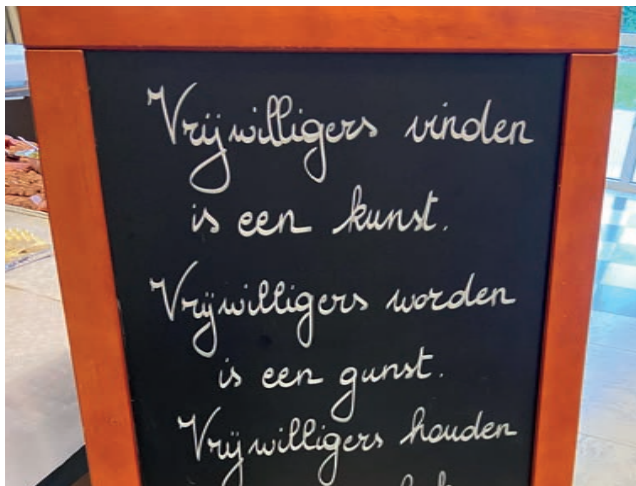 Vrijwilligers vinden
is een kunst.
Vrijwilligers worden
is een gunst.
Vrijwilligers houden